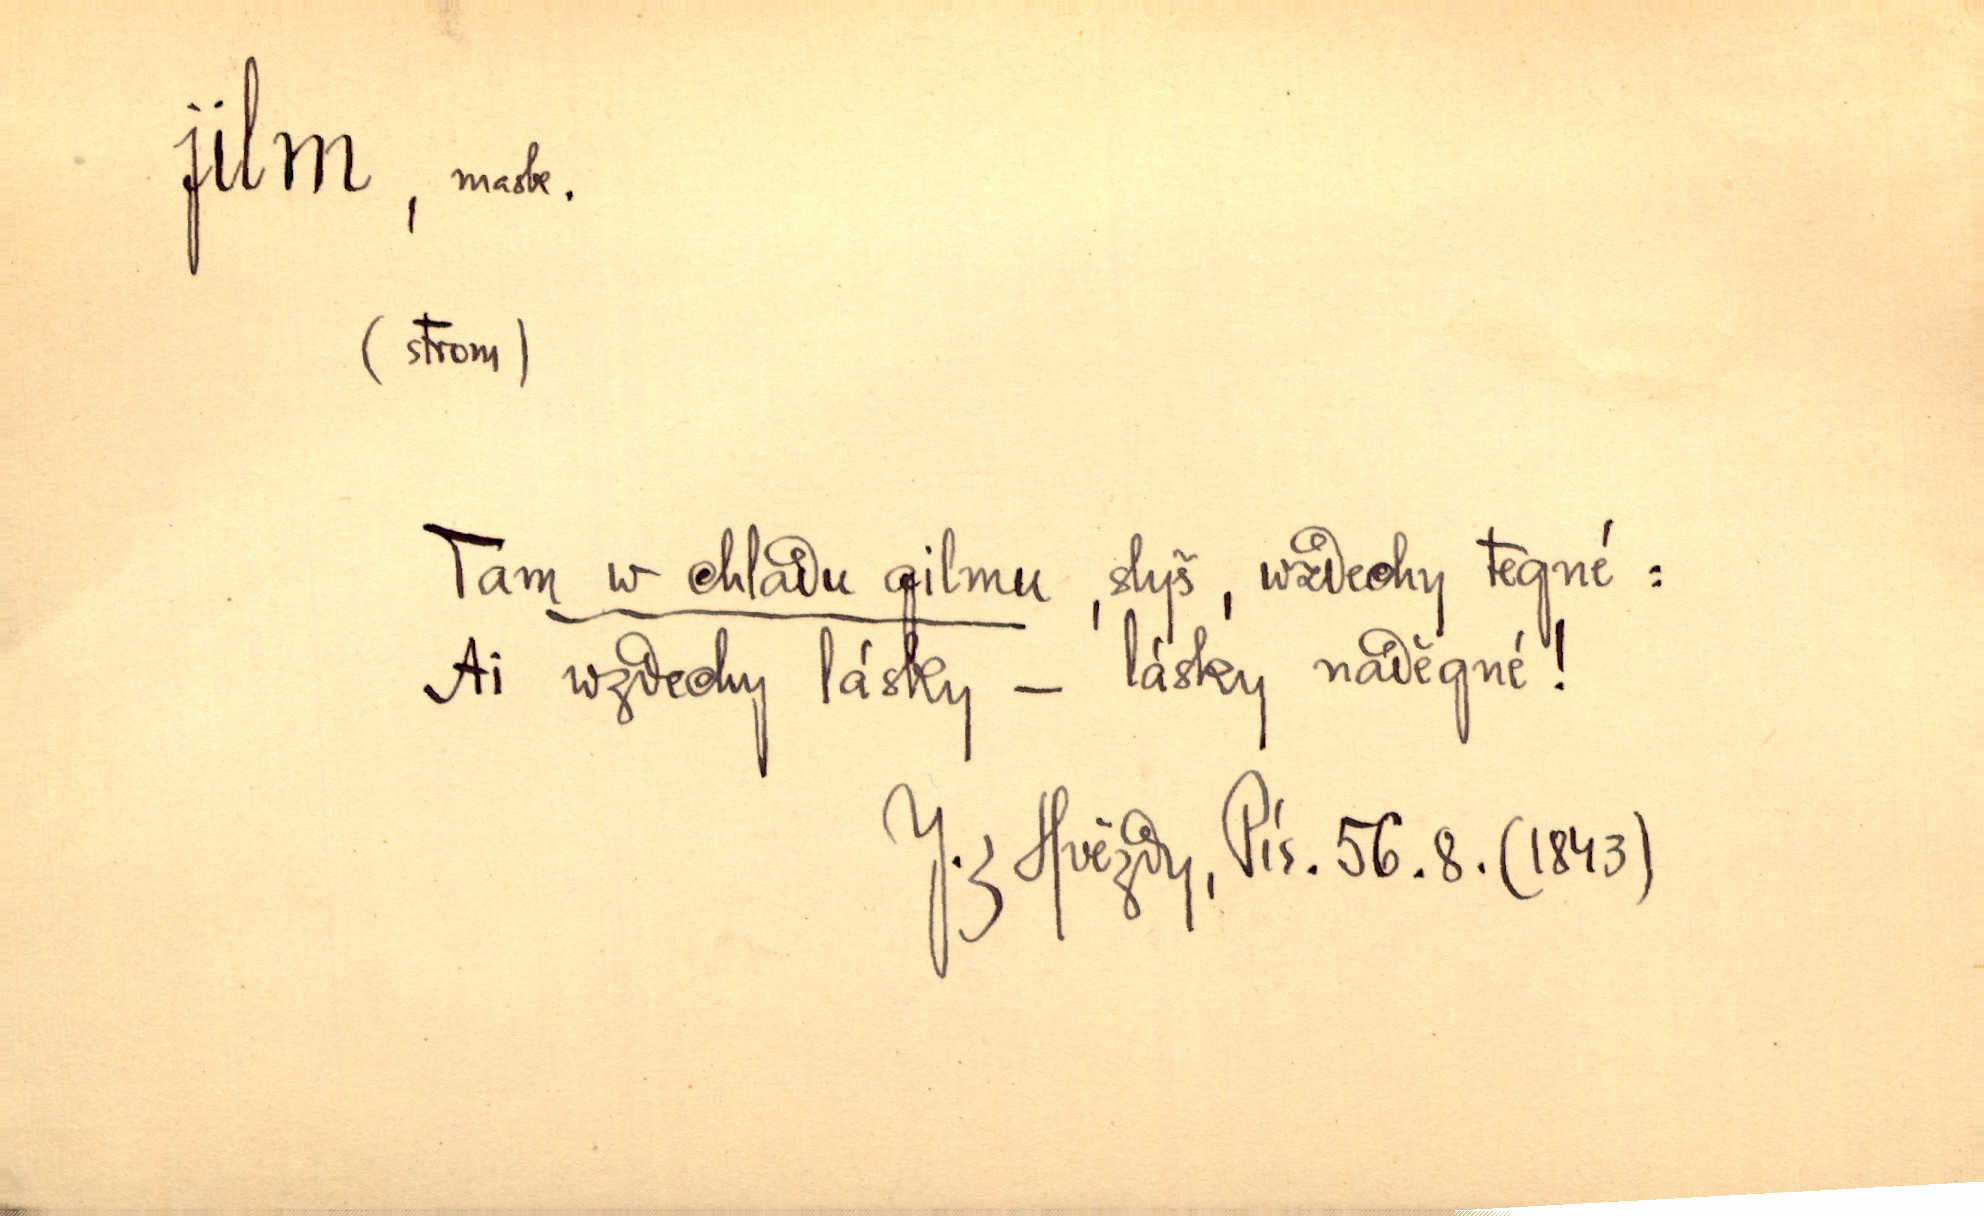 jilm, mask.
(strom)
Tam w chládu gilmu, slyš, wzdechy tegné:
Ai wzdechy lásky – lásky náděgné!
J. z Hvězdy, Pís. 56.8. (1843)